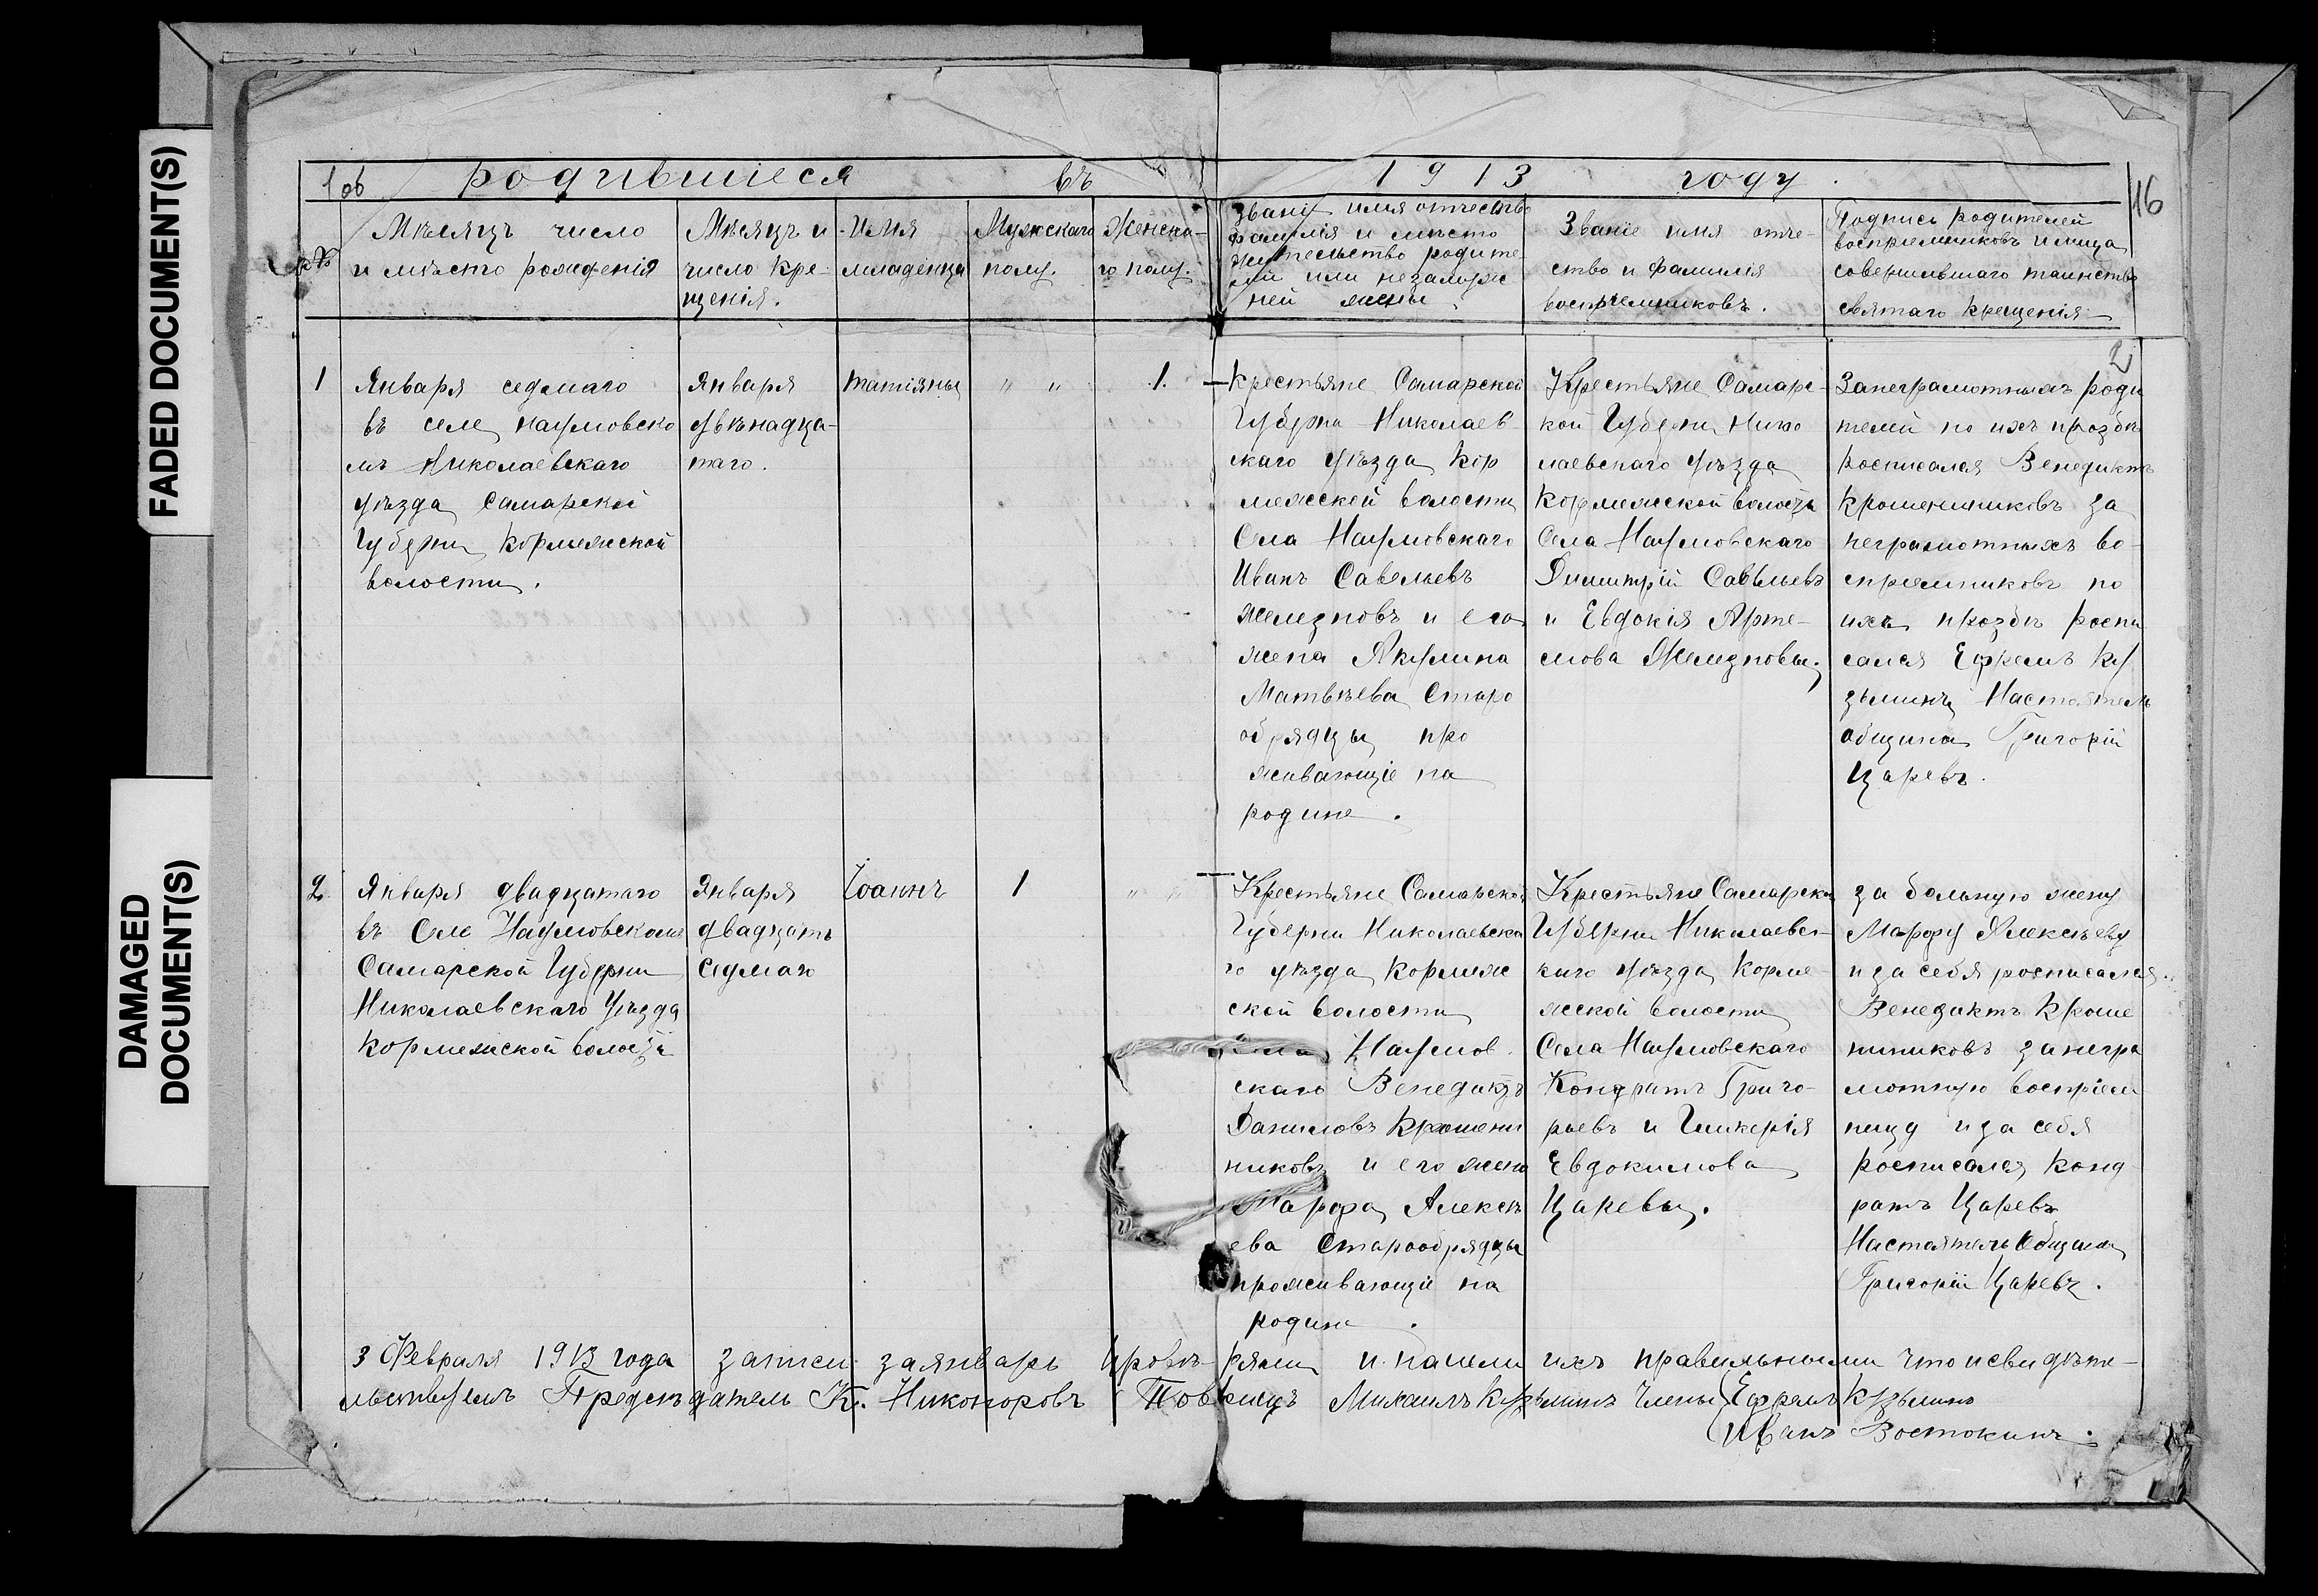 FADED DOCUMENT(S)
DAMAGED
DOCUMENT(S)
1об родившіеся въ 1913 году.
16
Мѣсяцъ число
и мѣсто рожденія
Мѣсяцъ и
число кре-
щенія.
Имя
младенца
Мужскаго
полу.
Женска-
го полу.
Званіе имя отчество
фамилія и мѣсто
жительство родите
лей или незамуж
ней жены
Званіе имя отче-
ство и фамилія
воспріемниковъ.
Подпись родителей
воспріемниковъ и лица
совершившаго таинство
святаго крещенія
2
1
Января седмаго
въ селе Наумовско
мъ Николаевскаго
уѣзда Самарской
Губерни Кормежской
волости.
Января
двѣнадца-
таго.
Татіяны
" "
1.
Крестьяне Самарской
Губерни Николаев
скаго уѣзда Кор
межской волости
Села Наумовскаго
Иванъ Савельевъ
Железновъ и его
жена Акулина
Матвѣева Старо
обрядцы про
живающіе на
родине.
Крестьяне Самарс-
кой Губерни Нико
лаевскаго уѣзда
Кормежской волости
Села Наумовскаго
Димитрій Савельевъ
и Евдокія Арте-
мова Железновы.
Занеграмотныхъ роди
телей по ихъ прозбѣ
росписался Венедиктъ
Крошенинниковъ за
неграмотныхъ во-
спріемниковъ по
ихъ прозбѣ роспи
сался Ефремъ Ку
зьминъ Настоятель
общины Григорій
Царевъ.
2
Января двадцатаго
въ Селе Наумовскомъ
Самарской Губерни
Николаевскаго Уѣзда
Кормежской волости
Января
двадцать
седмаго
Іоаннъ
1
" "
Крестьяне Самарской
Губерни Николаевска
го уѣзда Кормеж
ской волости
Села Наумов
скаго Венедиктъ
Даниловъ Крошени
никовъ и его жена
Марфа Алексѣ
ева Старообрядцы
проживающіе на
родине.
Крестьяне Самарской
Губерни Николаевс-
каго уѣзда Корме-
жской волости
Села Наумовскаго
Кондратъ Григо-
рьевъ и Гликерія
Евдокимова
Царевы.
за больную жену
Марфу Алексѣеву
и за себя росписался
Венедиктъ Кроше
нинниковъ занегра
мотную воспріем
ницу и за себя
росписался Конд
ратъ Царевъ
Настоятель Общины
Григорій Царевъ.
3 Февраля 1913 года записи за январь провѣ-ряли и нашли ихъ правильными что и свидѣте-
льствуемъ Предсѣдатель К. Никоноровъ Товарищъ Михаилъ Кузьминъ Члены Ефремъ Кузьминъ
Иванъ Востокинъ.